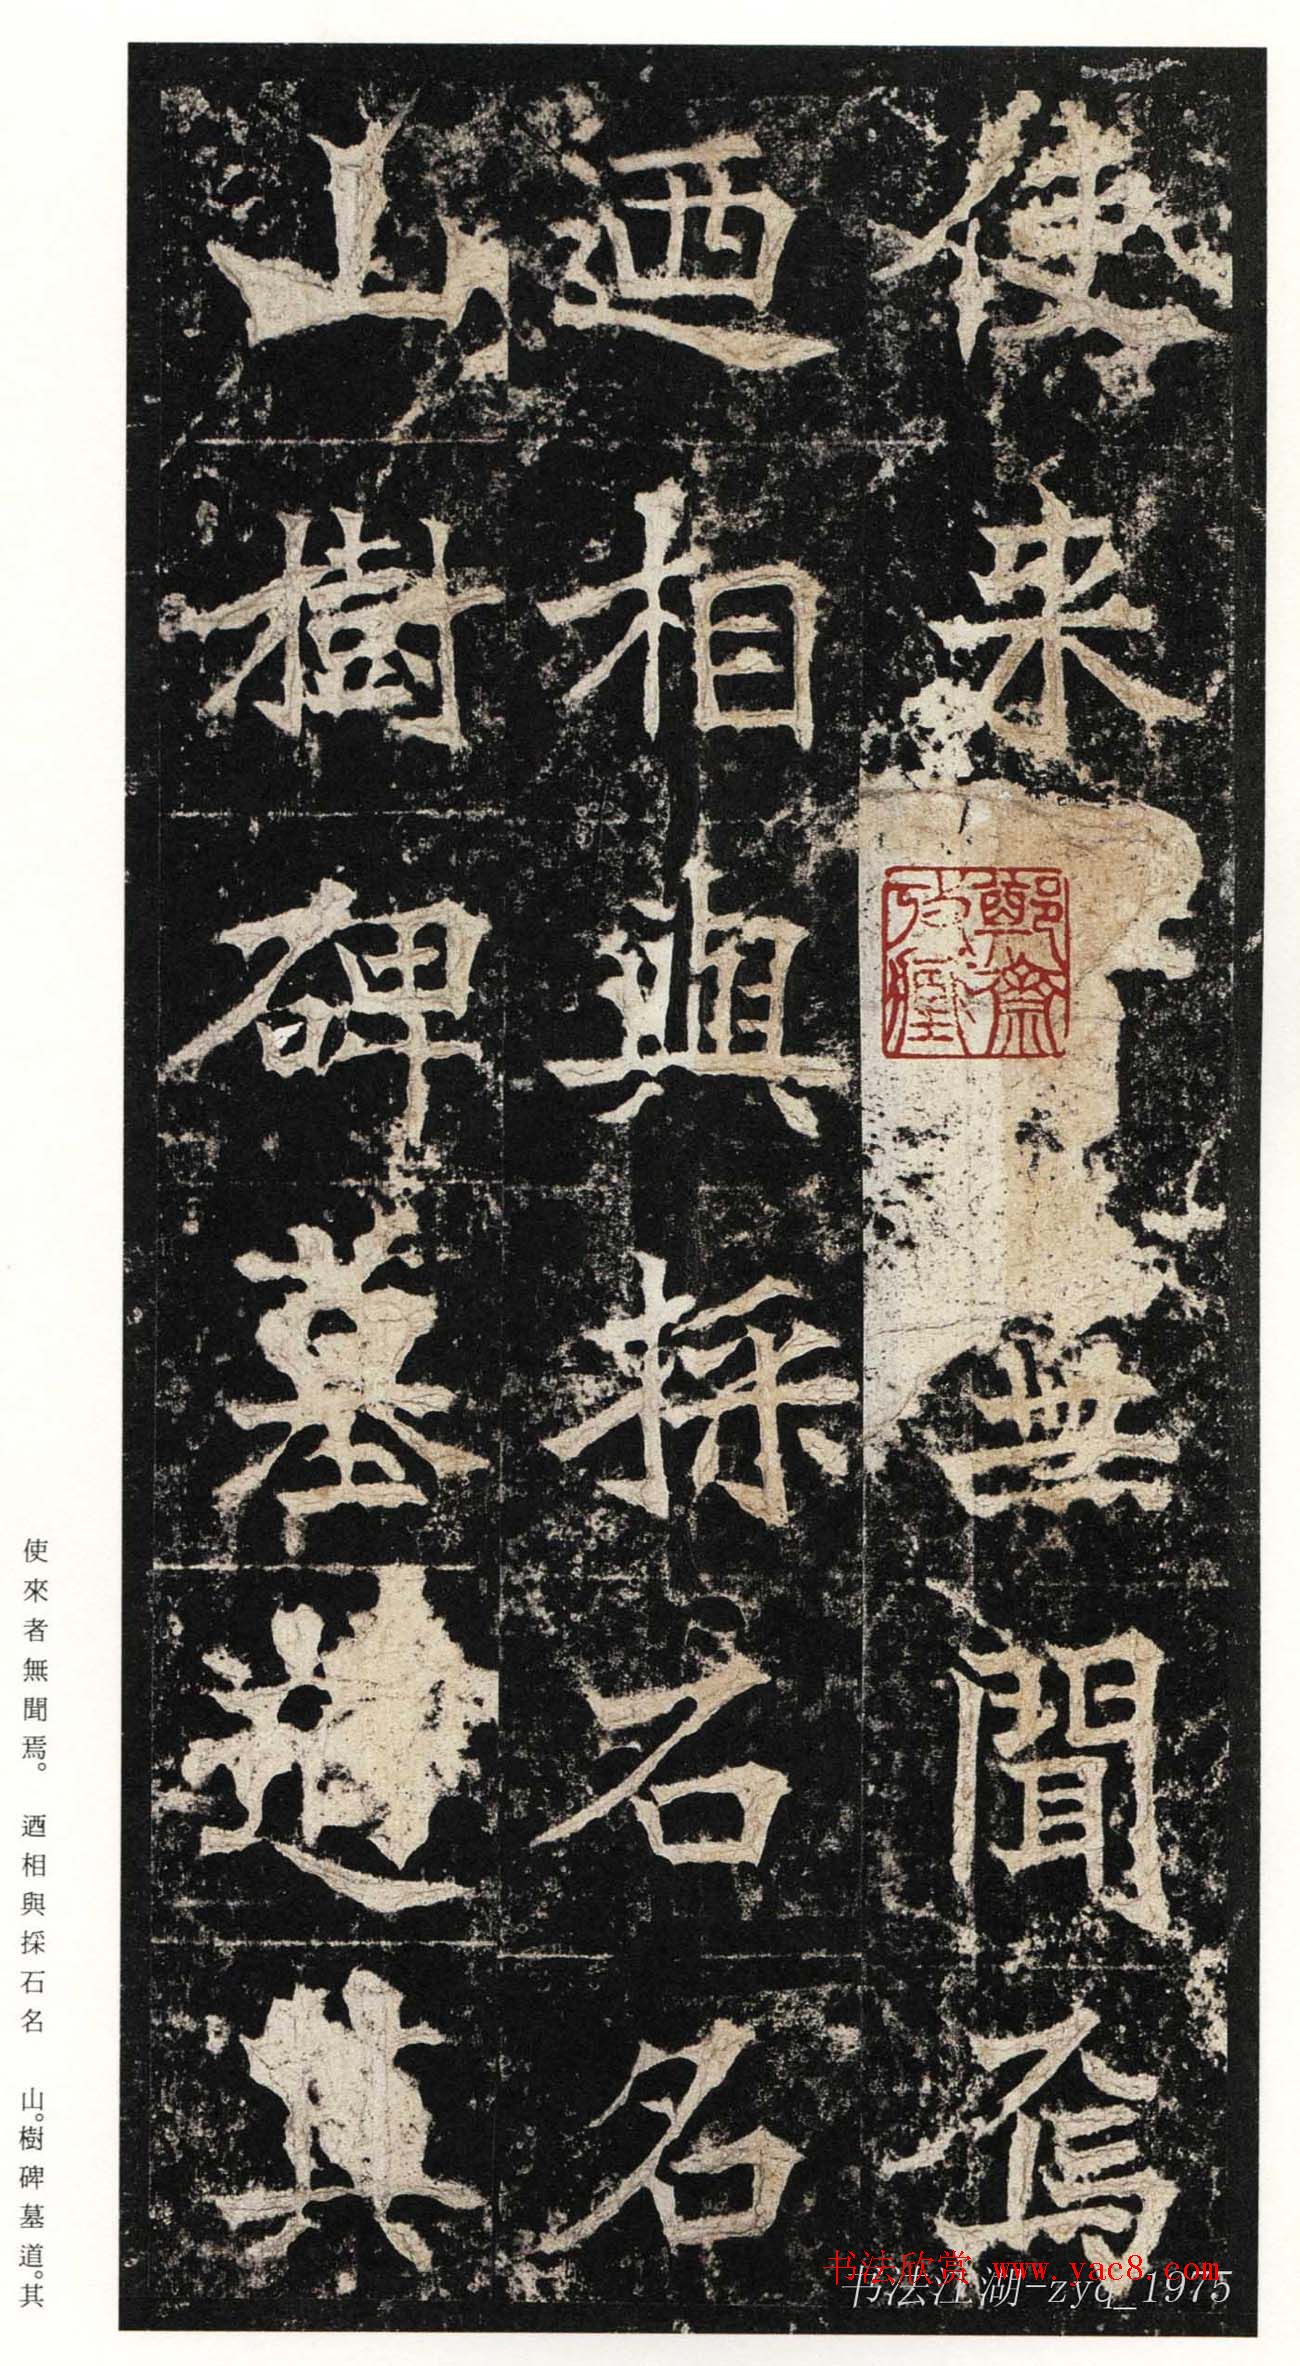 使来無聞焉
迺相與採石名
山樹碑墓道其
鄭齋
使來者無聞焉。 迺相與採石名 山。樹碑墓道。其
书法欣赏 www.yac8.com
书法江湖-zyq_1975